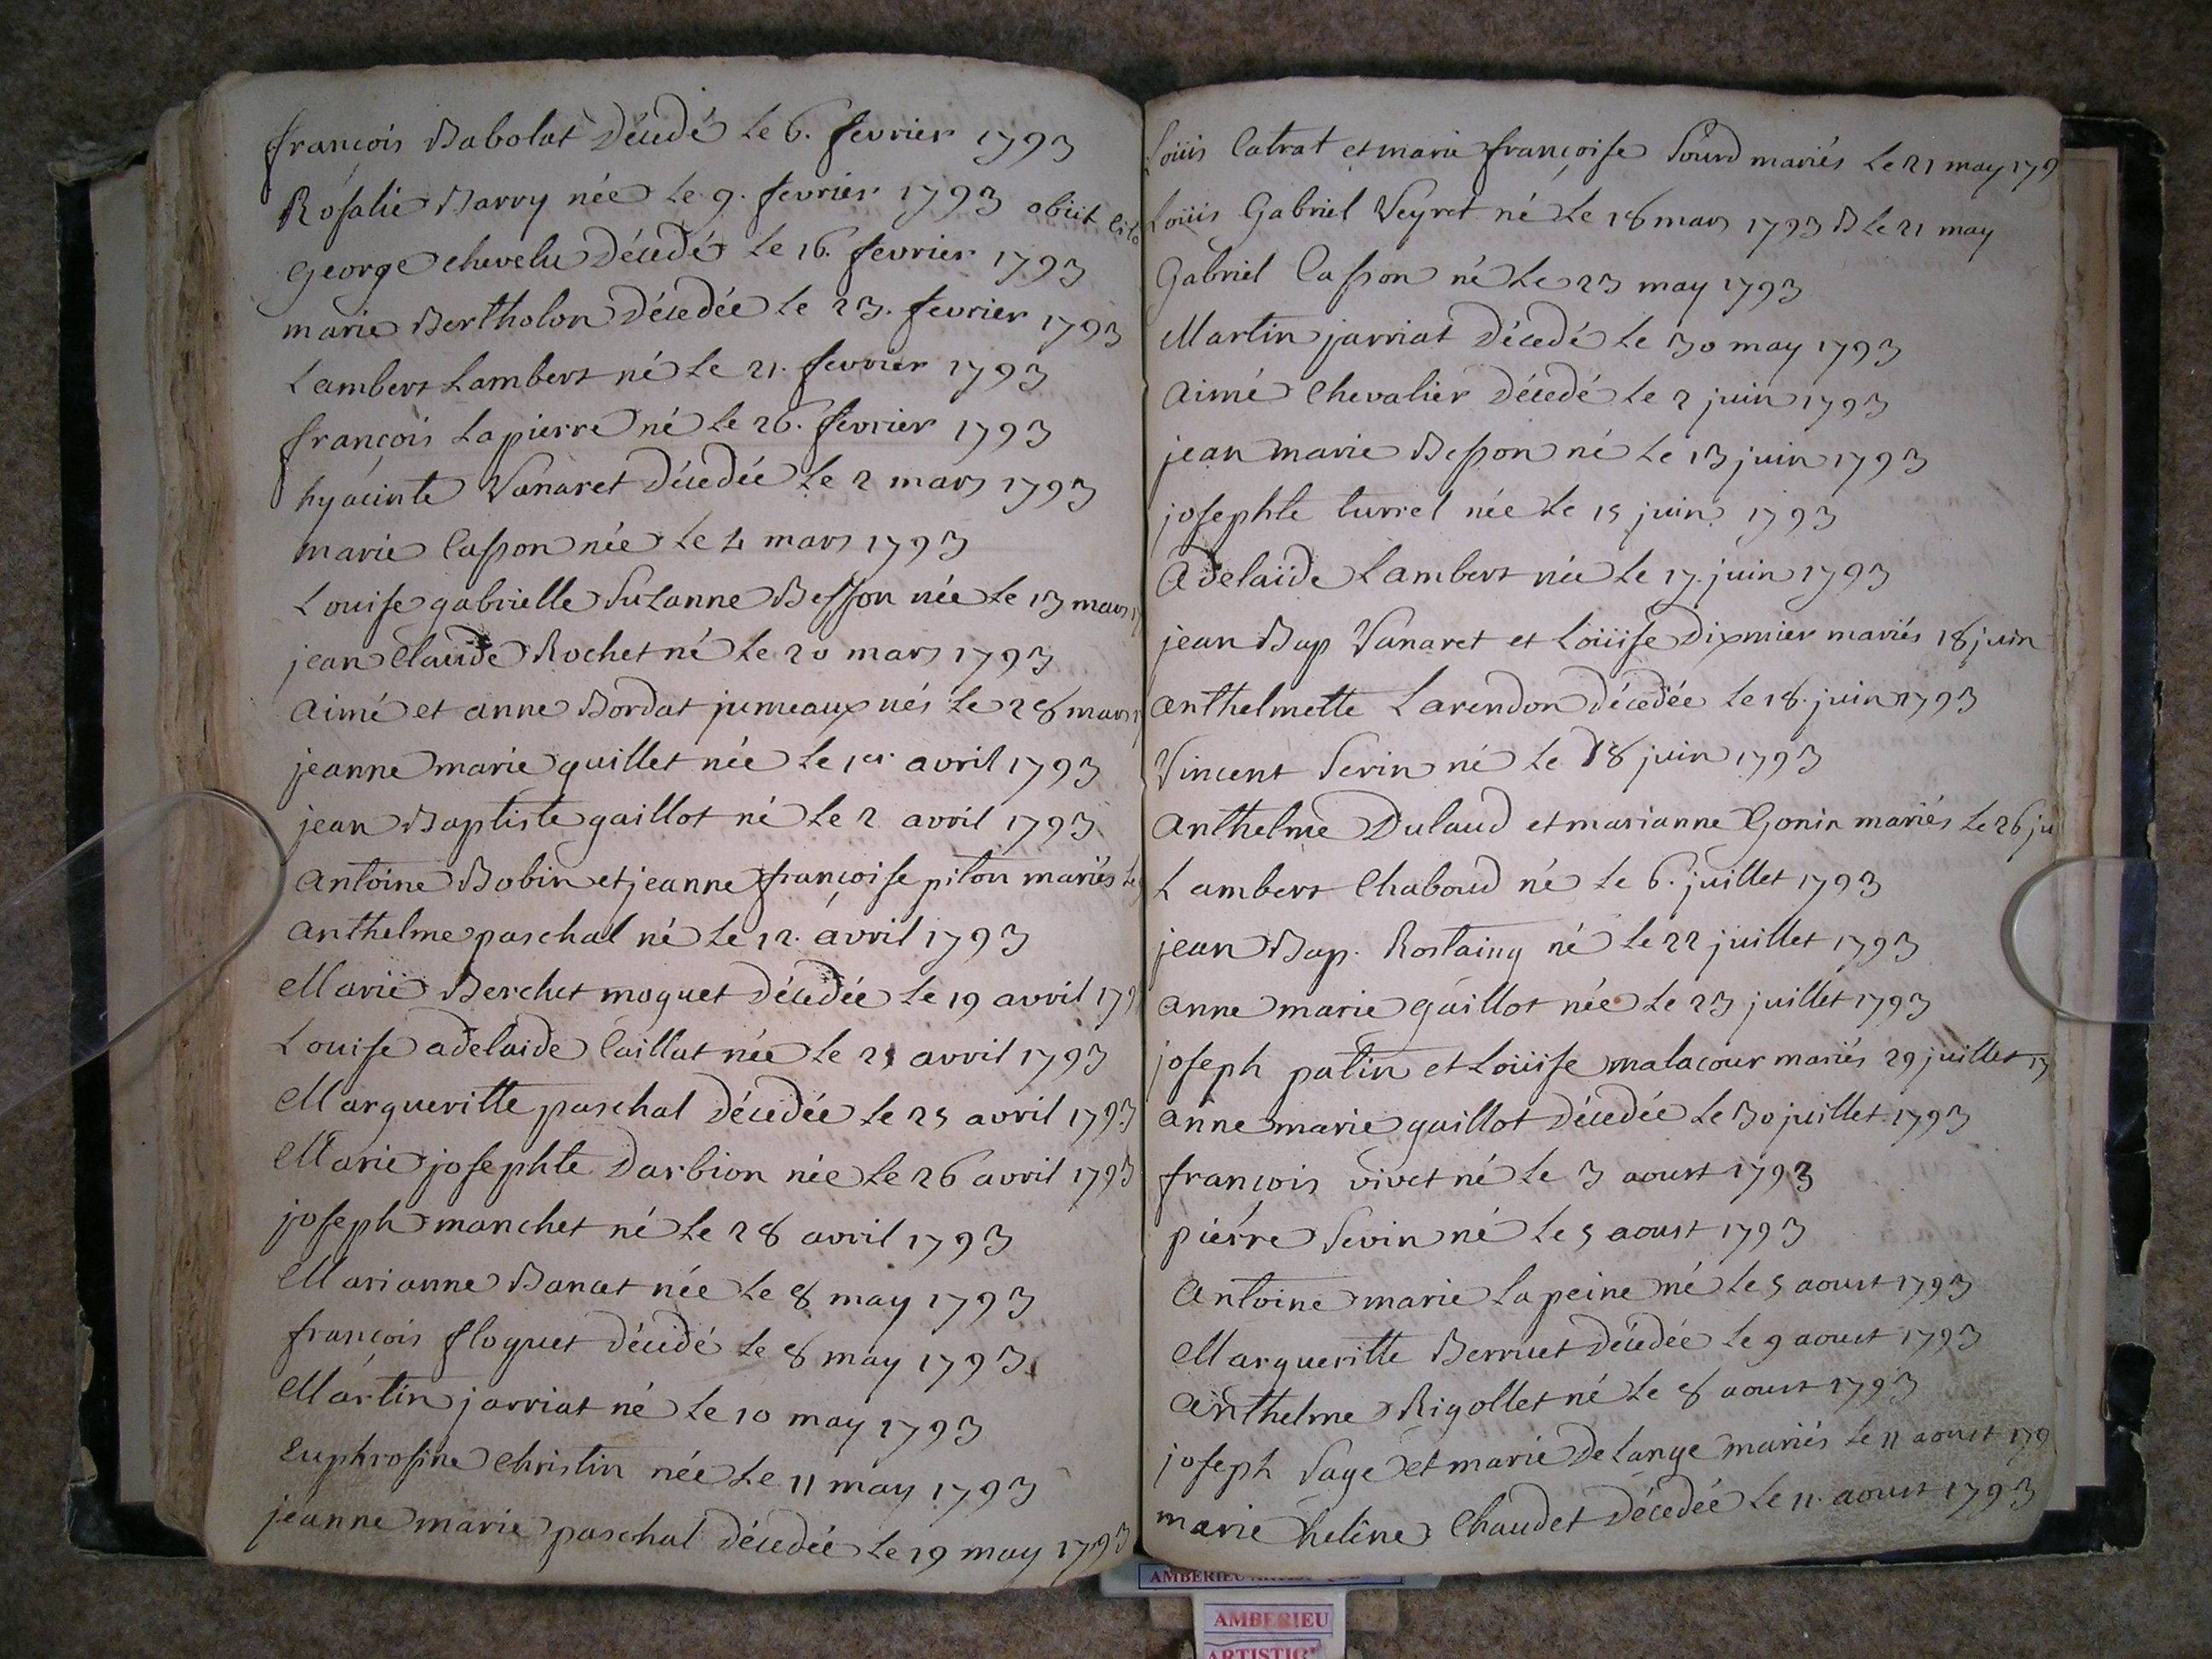 françois Babolat Décédé Le 6. fevrier 1793
Rosalie Barry née Le 9. fevrier 1793 obiit cito
george chevelu Décédé Le 16. fevrier 1793
marie Bertholon Décedée Le 23. fevrier 1793
Lambert Lambert né Le 21. fevrier 1793
françois Lapierre né Le 26. fevrier 1793
hyacinte Vanaret Décédée Le 2 mars 1793
marie Casson née Le 4 mars 1793
Louise gabrielle Suzanne Besson née Le 13 mars
jean Claude Rochet né Le 20 mars 1793
aimé et anne Bordat jumeaux nés Le 28 mars
jeanne marie guillet née Le 1er avril 1793
jean Baptiste gaillot né Le 2 avril 1793
antoine Bobin et jeanne françoise piton mariés Le
anthelme paschal né Le 12. avril 1793
Marie Berchet moguet Décedée Le 19 avril 179
Louise adelaide Caillat née Le 21 avril 1793
Margueritte paschal Décedée Le 25 avril 1793
Marie josephte Darbion née Le 26 avril 1793
joseph manchet né Le 28 avril 1793
Marianne Bancet née Le 8 may 1793
françois floquet Décédé Le 8 may 1793
Martin jarriat né Le 10 may 1793
Euphrosine Christin née Le 11 may 1793
jeanne marie paschal Décedée Le 19 may 1793
Loüis Catrat et marie françoise Sourd mariés Le 21 may 179
Loüis Gabriel Veyret né Le 18 mars 1793 B Le 21 may
Gabriel Casson né Le 23 may 1793
Martin jarriat Décedé Le 30 may 1793
aimé Chevalier Décedé Le 2 juin 1793
jean marie Besson né Le 13 juin 1793
josephte turrel née Le 15 juin 1793
adelaïde Lambert née Le 17. juin 1793
jean Bap Vanaret et Loüise Dixmier mariés 18 juin
anthelmette Larendon Décedée Le 18. juin 1793
Vincent Serin né Le 18 juin 1793
anthelme Dulaud et marianne Gonin mariés Le 26 ju
Lambert Chaboud né Le 6. juillet 1793
jean Bap. Rostaing né Le 22 juillet 1793
anne marie guillot née Le 23 juillet 1793
joseph patin et Loüise malacour mariés 29 juillet 17
anne marie guillot Décedée Le 30 juillet 1793
françois vivet né Le 3 aoust 1793
pierre Sevin né Le 5 aoust 1793
antoine marie Lapeine né Le 5 aoust 1793
Margueritte Berruet Décedée Le 9 aoust 1793
anthelme Rigollet né Le 8 aoust 1793
joseph Sage et marie Delange mariés Le 11 aoust 179
marie heline Chaudet Décedée Le 11. aoust 1793
AMBERIEU
AMBERIEU
ARTISTIQ